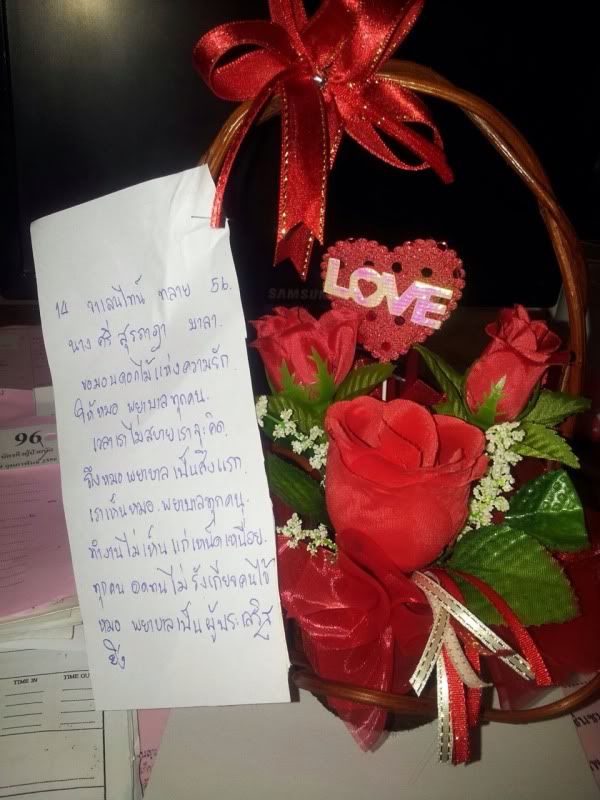 14 วาเลนไทน์ ทลาย 56.
นาง ศรี สุรภาฎา มาลา.
ขอมอบดอกไม้แห่งความรัก.
ให้หมอ พยาบาลทุกคน.
เวลาเราไม่สบายเราจะคิด.
ถึงหมอพยาบาลเป็นสิ่งแรก.
เราเห็นหมอ.พยาบาลทุกคน.
ทำงานไม่เห็นแก่เหน็ดเหนื่อย.
ทุกคน อดทนไม่รังเกียจคนไข้
หมอ พยาบาลเป็นผู้ประเสริฐ
ยิ่ง
LOVE
SAMSUNG
96
TIME IN
TIME OU